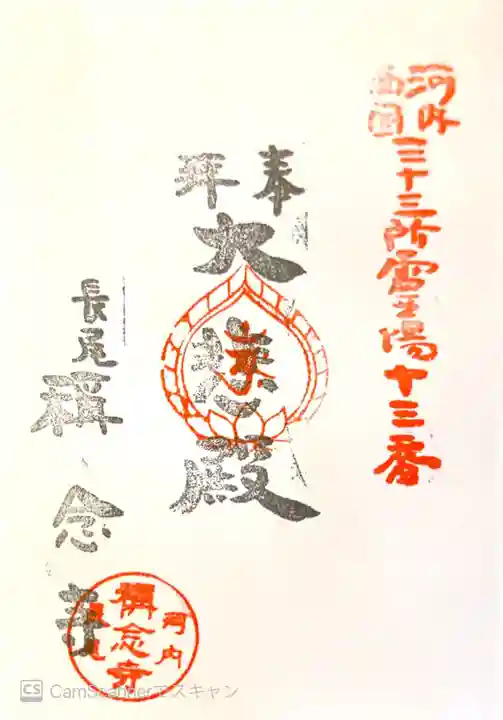 河内
西国
三十三所霊場十三番
奉拝
大悲殿
長尾
稱念寺
河内
稱念寺
長尾
CS CamScannerでスキャン